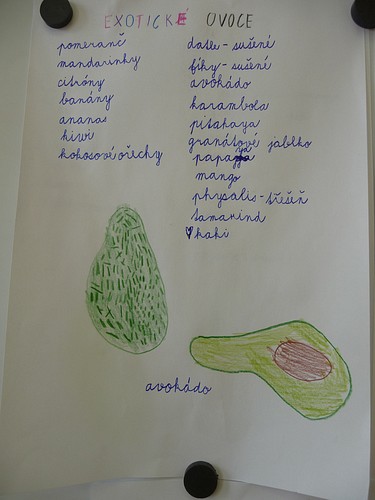 EXOTICKÉ OVOCE
pomeranč
mandarinky
citróny
banány
ananas
kiwi
kokosové ořechy
datle - sušené
fíky - sušené
avokádo
karambola
pitahaya
granátové jablko
papaya
mango
physalis - třešeň
tamarind
kaki
avokádo